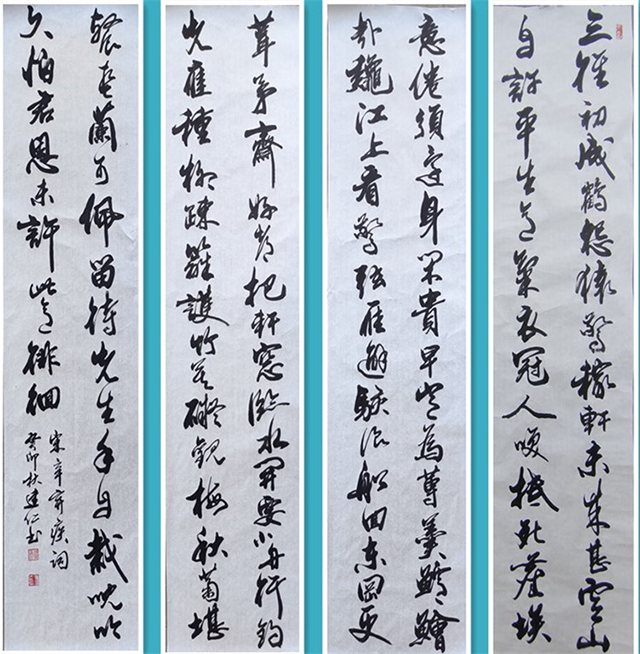 三徑初成鶴怨猿驚稼軒未来甚雲山
自許平生意氣衣冠人笑抵死塵埃
意倦須還身閑貴早豈為蓴羹鱸鱠
哉龝江上看驚弦雁避駭浪船回東岡更
葺茅齋好都把軒窗臨水開要小舟行釣
先應種柳疎籬護竹莫礙觀梅秋菊堪
餐春蘭可佩留待先生手自栽沈吟
久怕君恩未許此意徘徊
宋辛弃疾詞
癸卯秋建仁书